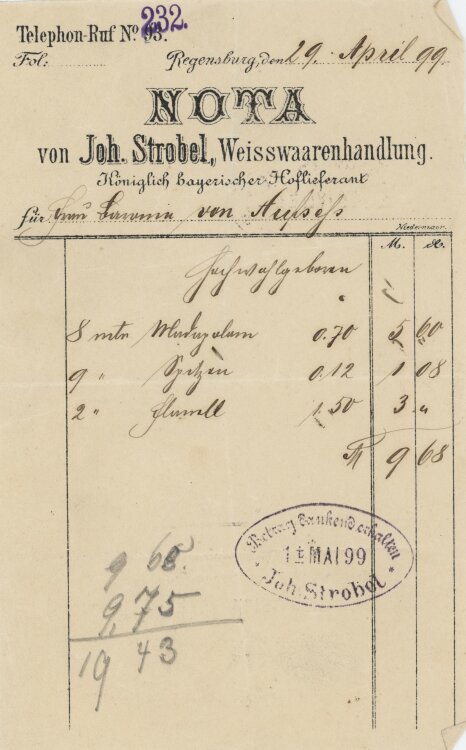 232.
Telephon-Ruf No. 93.
Fol:
Regensburg, den 29. April 99.
NOTA
von Joh. Strobel, Weisswaarenhandlung.
Königlich bayerischer Hoflieferant
für Frau Baronin von Aufsess
Niedermayr
M. ₰
Hochwohlgeboren
8 mtr Madapolam 0.70 5 60
9 " Spitzen 0.12 1 08
2 " Flanell 1.50 3 "
M 9 68
Betrag dankend erhalten
1 MAI 99
* Joh. Strobel *
9 68.
9,75
19 43